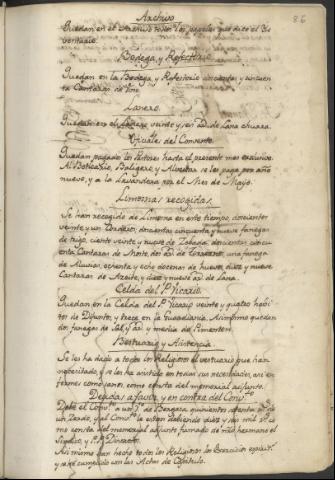 Archivo
86
Quedan en el Archivo todos los papeles que dice el In
ventario.
Bodega, y Refectorio
Quedan en la Bodega, y Refectorio cincuen
ta Cantaras de Vino
Lanero.
Quedan en el Lanero veinte y seis @ de Lana churra.
Oficiales del Convento.
Quedan pagados los Pastores hasta el presente mes exclusive.
Al Boticario, Baligero, y Albeitar se les paga por año
nuebe, y a la Lavandera por el Mes de Mayo.
Limosnas recogidas.
Se han recogido de Limosna en este tiempo, doscientos
veinte y un Corderos, doscientas cincuenta y nueve fanegas
de trigo, ciento veinte y nueve de Cebada, doscientas cincue
nta Cantaras de Mosto, dos @ de una fanega
de Alubias, ochenta y ocho docenas de huevos, diez y nueve
Cantaras de Azeite, y diez y nueve @ de Lana.
Celda del P. Vicario.
Quedan en la Celda del P. Vicario veinte y quatro habi
tos de Difuntos, y trece en la Guardiania. Asimismo quedan
dos fanegas de Sal, y @ y media de Pimenton.
Bestuario, y Asistencia.
Se les ha dado a todos los Religiosos el vestuario que han
necesitado, y se les ha asistido en todas sus necesidades, asi en
fermos como sanos, como consta del memorial adjunto.
Deudas a favor, y en contra del Conv.to
Debe el Conv.to a de Bergara quinientos setenta
un Zerdo, y al Conv.to le estan debiendo diez y seis mil co
mo consta del memorial adjunto firmado de nro hermano el
Sindico, y P.es Discretos.
Asi mismo han hecho todos los Religiosos los Exercicios espirit.s
y se ha cumplido con las Actas de Capitulo.